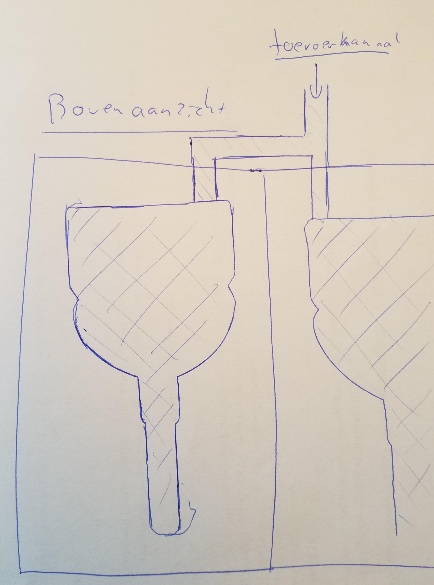 toevoerkanaal
Bovenaanzicht